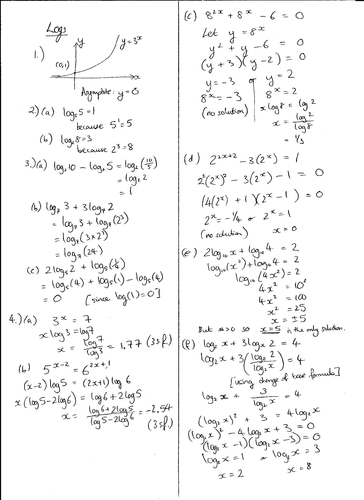 Logs
1.)
y
y=3^x
(0,1)
x
Asymptote: y=0
2)(a) log₅5=1
because 5¹=5
(b) log₂8=3
because 2³=8
3.)(a) log₂10 - log₂5 = log₂(10/5)
= log₂2
= 1
(b) log₇3 + 3log₇2
= log₇3 + log₇(2³)
= log₇(3×2³)
= log₇(24)
(c) 2log₅2 + log₅(¼)
= log₅(4) + log₅(1) - log₅(4)
= 0 [since log(1)=0]
4.)(a) 3^x = 7
x log3 = log7
x = log7/log3 = 1.77 (3sf.)
(b) 5^(x-2) = 6^(2x+1)
(x-2)log5 = (2x+1)log6
x(log5-2log6) = log6+2log5
x = (log6+2log5)/(log5-2log6) = -2.54
(3sf.)
(c) 8^(2x) + 8^x - 6 = 0
Let y = 8^x
y² + y - 6 = 0
(y+3)(y-2) = 0
y = -3 or y = 2
8^x = -3 8^x = 2
(no solution) x log8 = log2
x = log2/log8
= 1/3
(d) 2^(2x+2) - 3(2^x) = 1
2²(2^x)² - 3(2^x) - 1 = 0
(4(2^x) + 1)(2^x - 1) = 0
2^x = -1/4 or 2^x = 1
(no solution) x = 0
(e) 2log₁₀x + log₁₀4 = 2
log₁₀(x²) + log₁₀4 = 2
log₁₀(4x²) = 2
4x² = 10²
4x² = 100
x² = 25
x = ±5
But x>0 so x=5 is the only solution.
(f) log₂x + 3log_x 2 = 4
log₂x + 3(log₂2/log₂x) = 4
[using change of base formula]
log₂x + 3/log₂x = 4
(log₂x)² + 3 = 4log₂x
(log₂x)² - 4log₂x + 3 = 0
(log₂x - 1)(log₂x - 3) = 0
log₂x = 1 or log₂x = 3
x = 2 x = 8